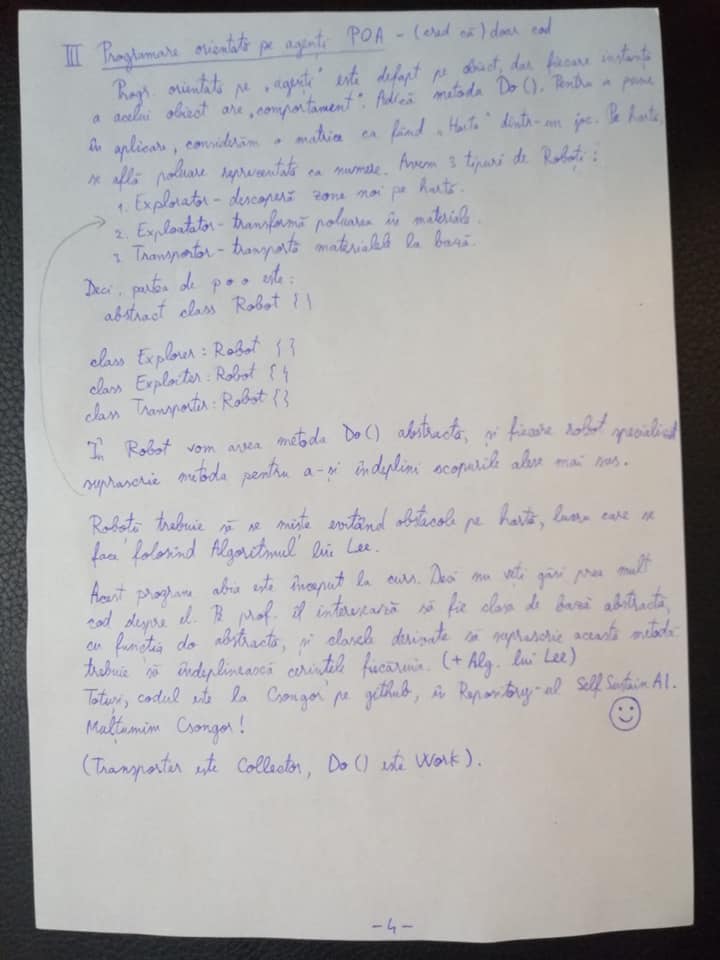 III Programare orientată pe agenți POA - (cred că) doar cod
Progr. orientată pe „agenți" este defapt pe obiect, dar fiecare instanță
a acelui obiect are „comportament". Adică metoda Do(). Pentru a pune
în aplicare, considerăm o matrice ca fiind „Harta" dintr-un joc. Pe hartă,
se află poluare reprezentată ca numere. Avem 3 tipuri de Roboți:
1. Explorator - descoperă zone noi pe hartă.
2. Exploatator - transformă poluarea în materiale.
3. Transportor - transportă materialele la bază.
Deci, partea de poo este:
abstract class Robot {}
class Explorer : Robot {}
class Exploiter : Robot {}
class Transporter : Robot {}
În Robot vom avea metoda Do() abstractă, și fiecare robot specializat
suprascrie metoda pentru a-și îndeplini scopurile alese mai sus.
Roboții trebuie să se miște evitând obstacole pe hartă, lucru care se
face folosind Algoritmul lui Lee.
Acest program abia este început la curs. Deci nu veți găsi prea mult
cod despre el. Pe prof. îl interesează să fie clasa de bază abstractă,
cu funcția do abstractă, și clasele derivate să suprascrie această metodă.
trebuie să îndeplinească cerințele fiecăruia. (+ Alg. lui Lee)
Totuși, codul este la Csongor pe github, în Repository-ul SelfSustainAI.
Mulțumim Csongor!
(Transporter este Collector, Do() este Work).
-4-